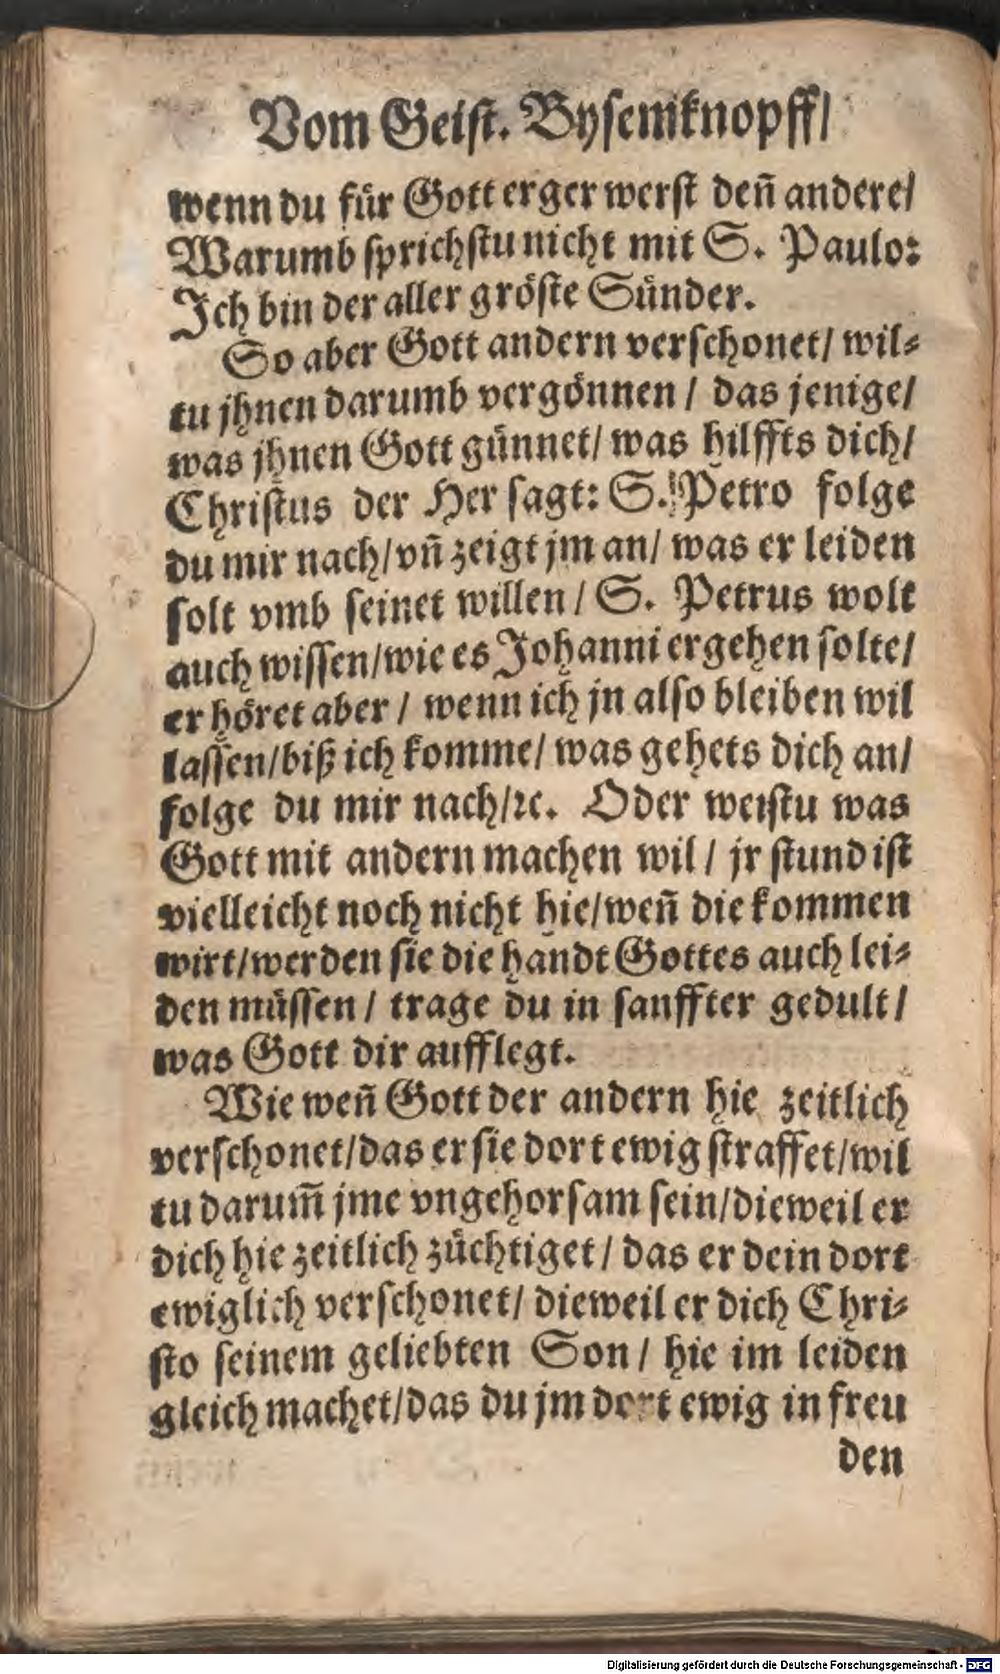 Vom Geist. Bysemknopff/
wenn du für Gott erger werst deñ andere/
Warumb sprichstu nicht mit S. Paulo:
Ich bin der aller gröste Sünder.
So aber Gott andern verschonet/ wil⸗
tu jhnen darumb vergönnen / das jenige/
was jhnen Gott günnet/ was hilffts dich/
Christus der Her sagt: S. Petro folge
du mir nach/ vñ zeigt jm an/ was er leiden
solt vmb seinet willen / S. Petrus wolt
auch wissen/wie es Johanni ergehen solte/
er höret aber / wenn ich jn also bleiben wil
lassen/biß ich komme/ was gehets dich an/
folge du mir nach/ꝛc. Oder weistu was
Gott mit andern machen wil / jr stund ist
vielleicht noch nicht hie/weñ die kommen
wirt/werden sie die handt Gottes auch lei⸗
den müssen / trage du in sanffter gedult /
was Gott dir aufflegt.
Wie weñ Gott der andern hie zeitlich
verschonet/das er sie dort ewig straffet/wil
tu darum̃ jme vngehorsam sein/dieweil er
dich hie zeitlich züchtiget / das er dein dort
ewiglich verschonet/ dieweil er dich Chri⸗
sto seinem geliebten Son / hie im leiden
gleich machet/das du jm dort ewig in freu
den
Digitalisierung gefördert durch die Deutsche Forschungsgemeinschaft - DFG